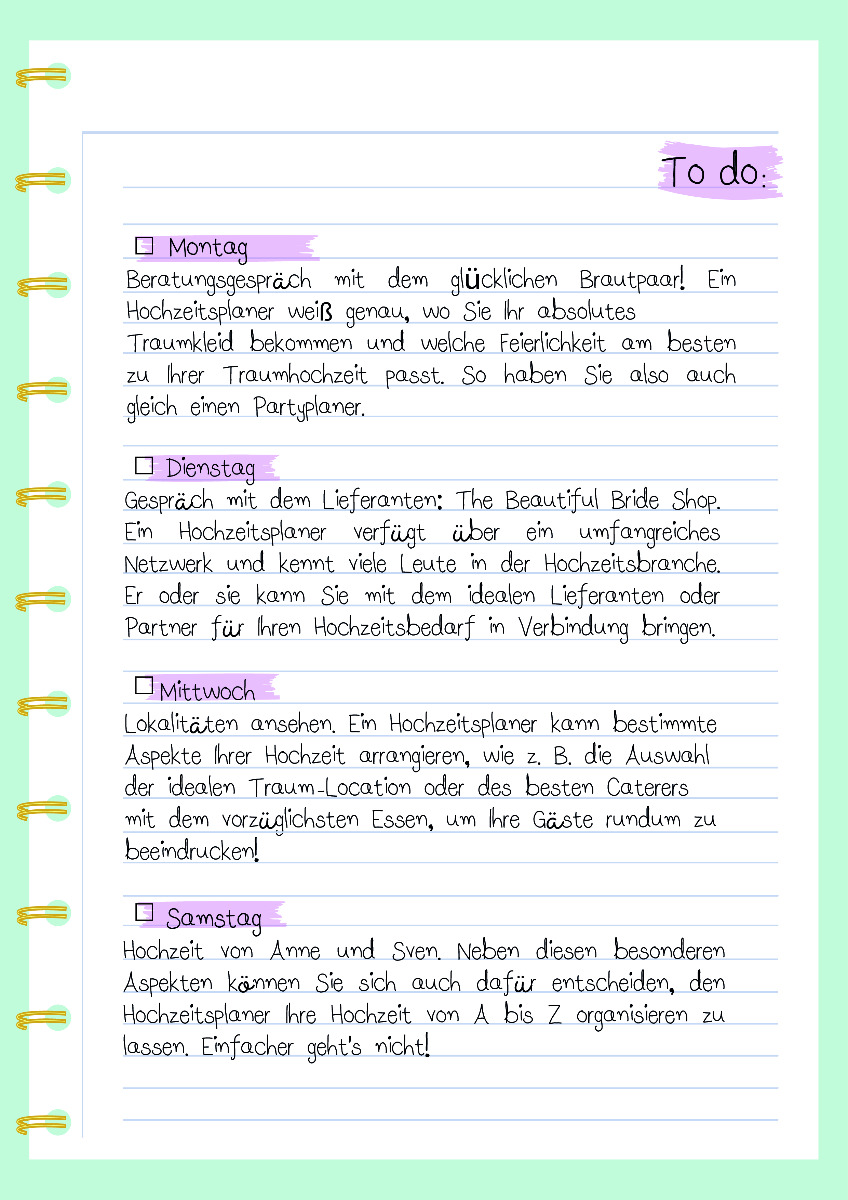 To do:
☐ Montag
Beratungsgespräch mit dem glücklichen Brautpaar! Ein
Hochzeitsplaner weiß genau, wo Sie Ihr absolutes
Traumkleid bekommen und welche Feierlichkeit am besten
zu Ihrer Traumhochzeit passt. So haben Sie also auch
gleich einen Partyplaner.
☐ Dienstag
Gespräch mit dem Lieferanten: The Beautiful Bride Shop.
Ein Hochzeitsplaner verfügt über ein umfangreiches
Netzwerk und kennt viele Leute in der Hochzeitsbranche.
Er oder sie kann Sie mit dem idealen Lieferanten oder
Partner für Ihren Hochzeitsbedarf in Verbindung bringen.
☐ Mittwoch
Lokalitäten ansehen. Ein Hochzeitsplaner kann bestimmte
Aspekte Ihrer Hochzeit arrangieren, wie z. B. die Auswahl
der idealen Traum-Location oder des besten Caterers
mit dem vorzüglichsten Essen, um Ihre Gäste rundum zu
beeindrucken!
☐ Samstag
Hochzeit von Anne und Sven. Neben diesen besonderen
Aspekten können Sie sich auch dafür entscheiden, den
Hochzeitsplaner Ihre Hochzeit von A bis Z organisieren zu
lassen. Einfacher geht's nicht!